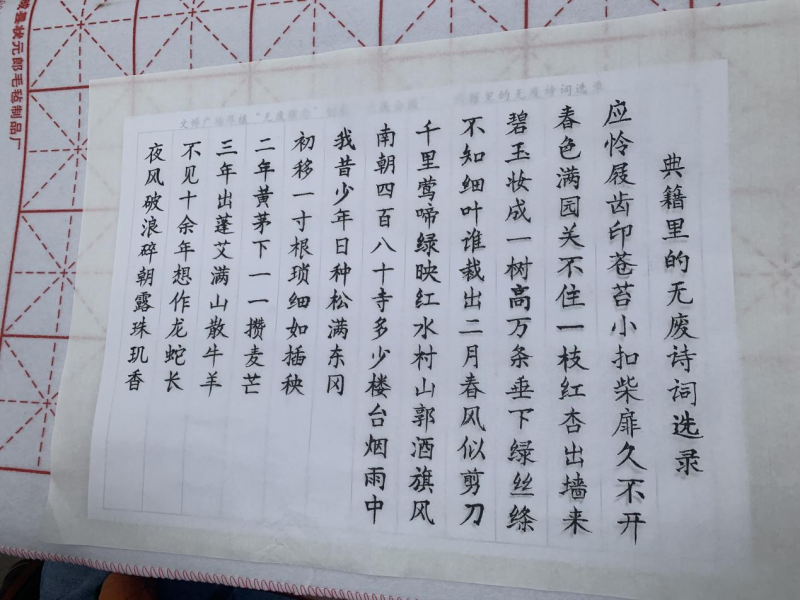 典籍里的无废诗词选录
应怜屐齿印苍苔小扣柴扉久不开
春色满园关不住一枝红杏出墙来
碧玉妆成一树高万条垂下绿丝绦
不知细叶谁裁出二月春风似剪刀
千里莺啼绿映红水村山郭酒旗风
南朝四百八十寺多少楼台烟雨中
我昔少年日种松满东冈
初移一寸根琐细如插秧
二年黄茅下一一攒麦芒
三年出蓬艾满山散牛羊
不见十余年想作龙蛇长
夜风破浪碎朝露珠玑香
状元郎毛毡制品厂